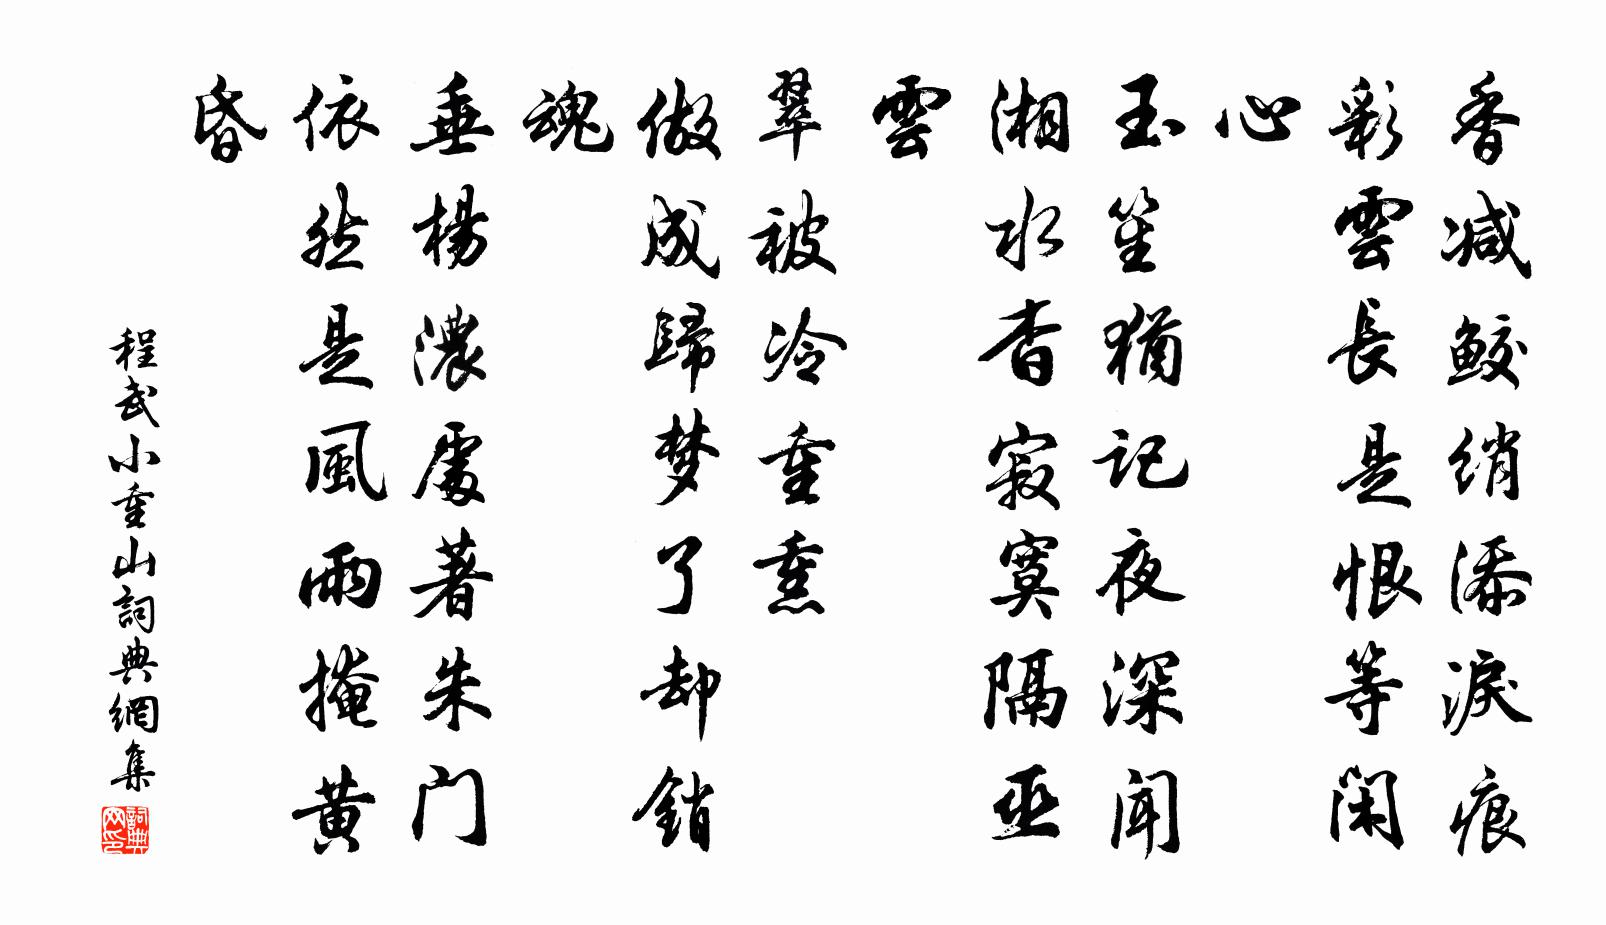 香減鮫綃添淚痕
彩雲長是恨等閑
心
玉笙猶記夜深聞
湘水杳寂寞隔巫
雲
翠被冷重熏
做成歸梦了却銷
魂
垂楊濃處著朱门
依然是風雨掩黄
昏
程武小重山詞典網集
詞典网印